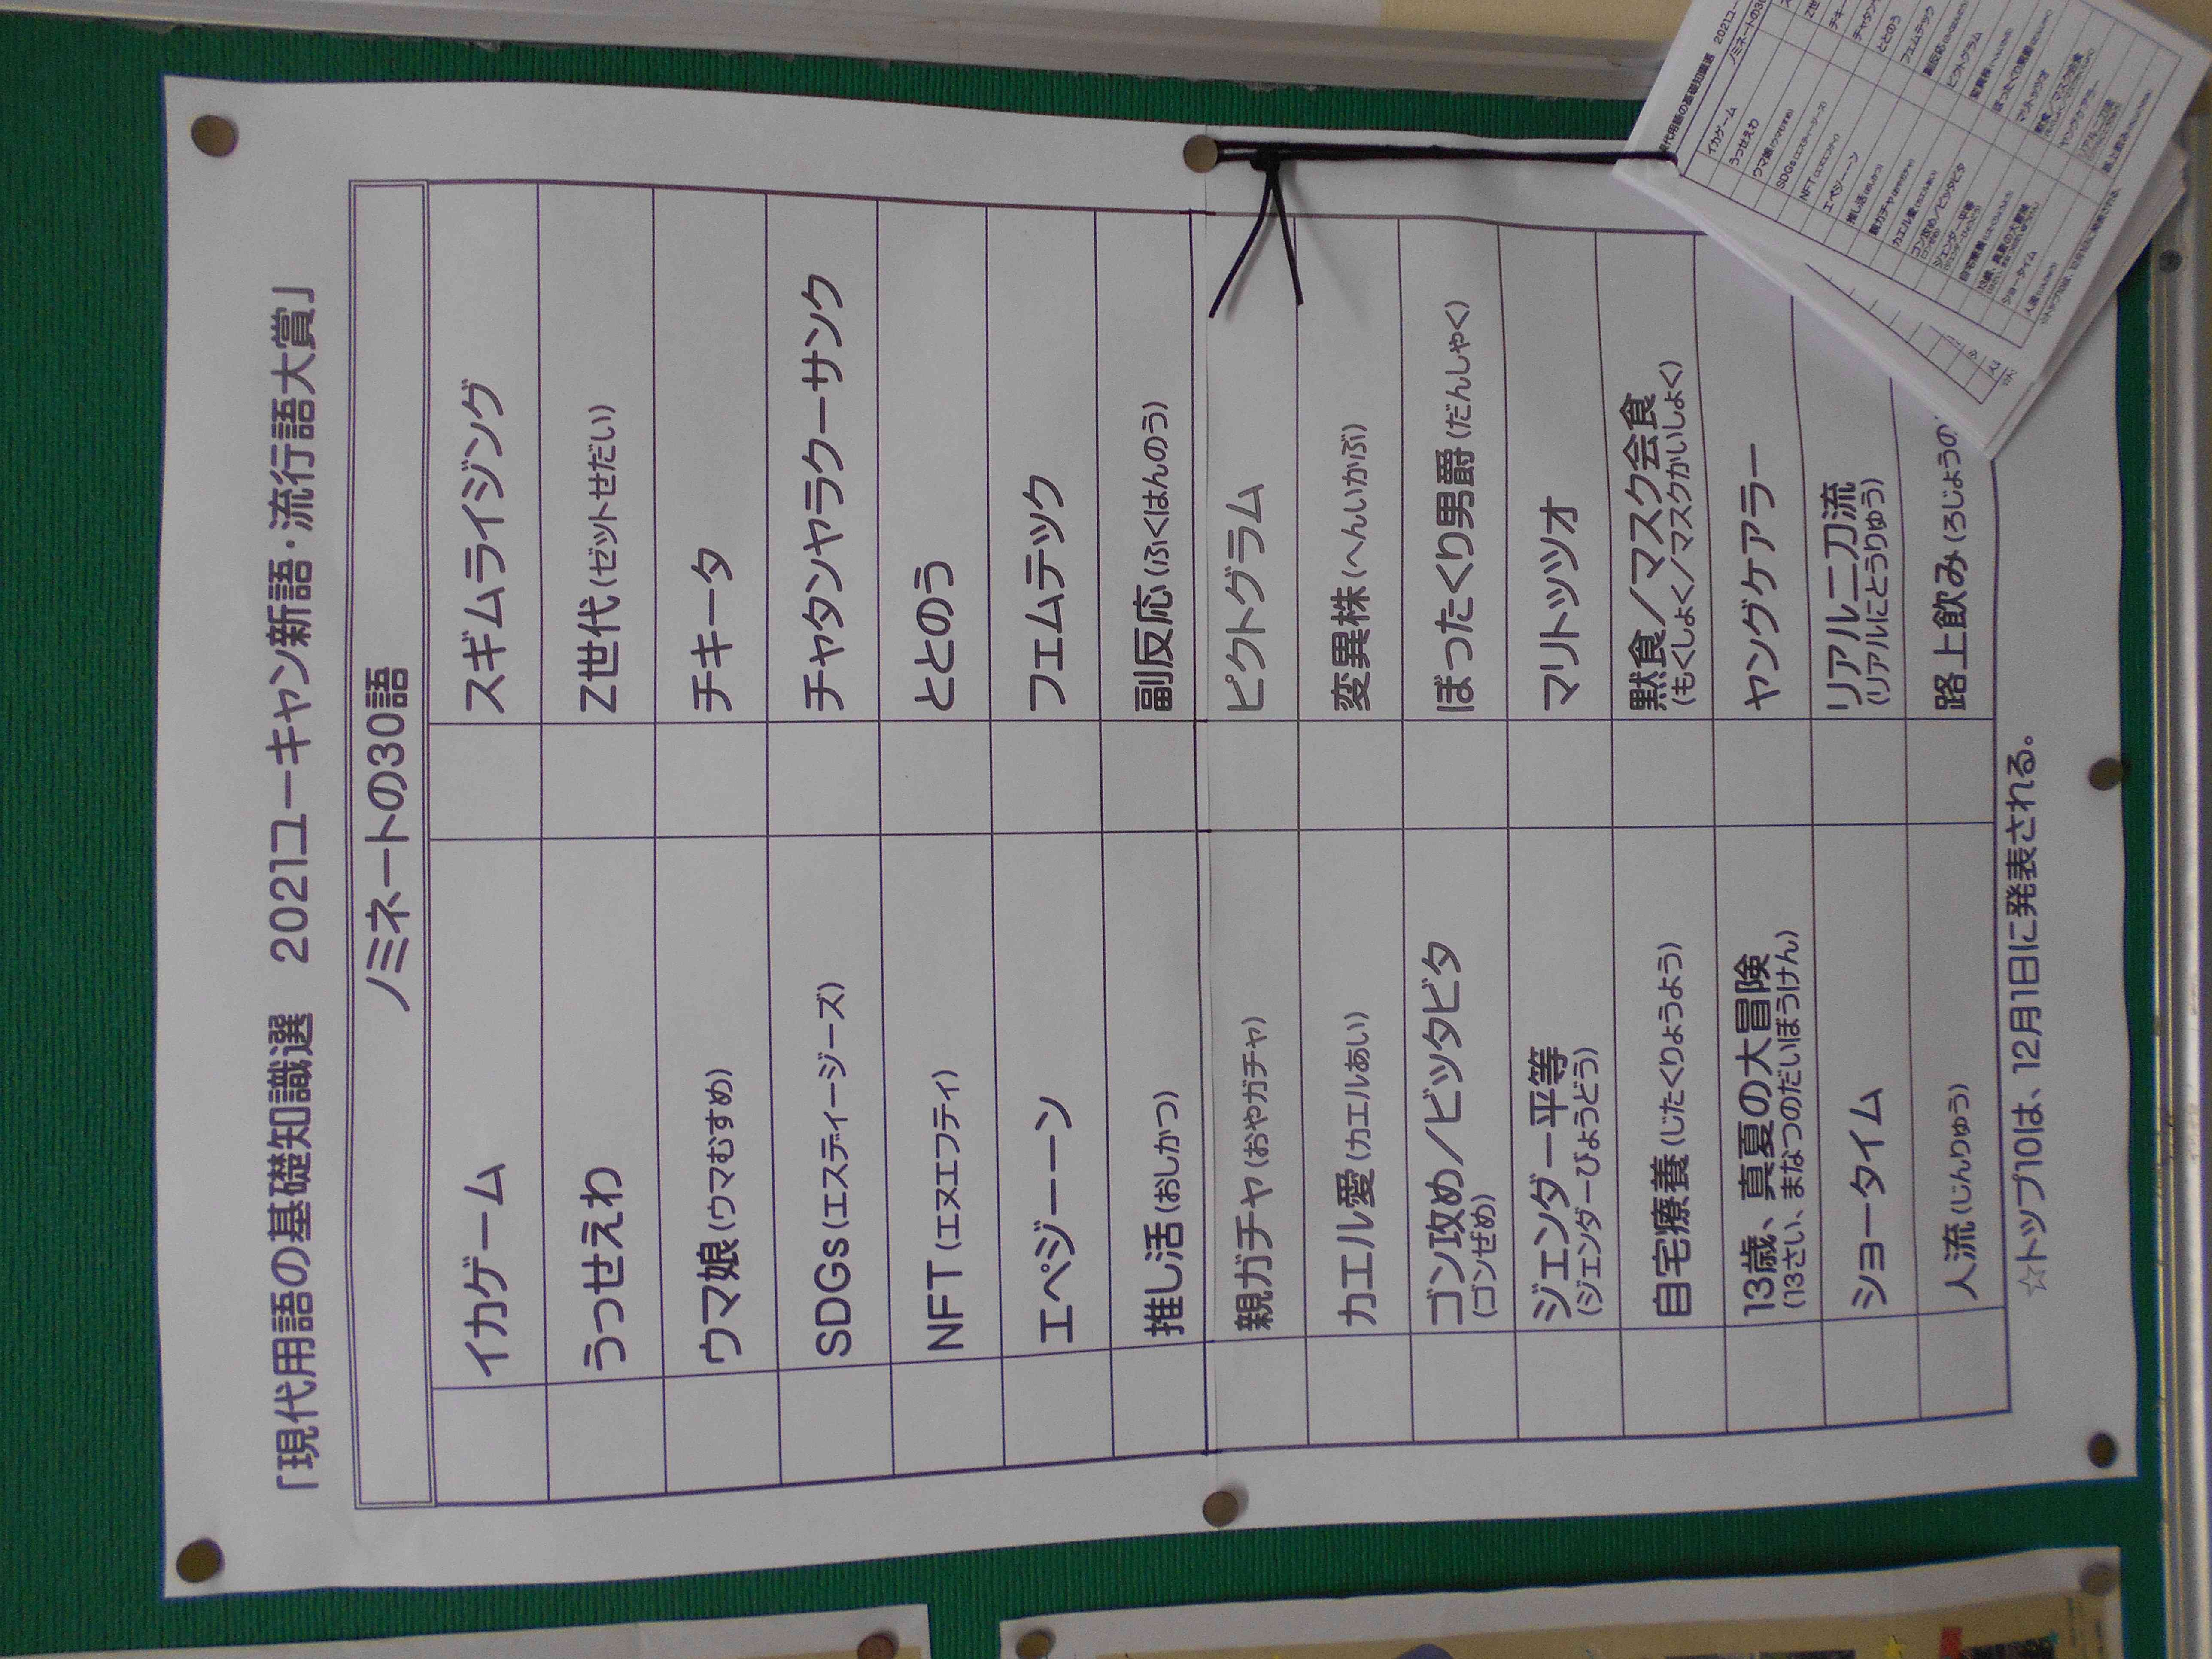 「現代用語の基礎知識選　2021ユーキャン新語・流行語大賞」
ノミネートの30語
イカゲーム
うっせえわ
ウマ娘(ウマむすめ)
SDGs(エスディージーズ)
NFT(エヌエフティ)
エペジーーン
推し活(おしかつ)
親ガチャ(おやガチャ)
カエル愛(カエルあい)
ゴン攻め／ビッタビタ
(ゴンぜめ)
ジェンダー平等
(ジェンダーびょうどう)
自宅療養(じたくりょうよう)
13歳、真夏の大冒険
(13さい、まなつのだいぼうけん)
ショータイム
人流(じんりゅう)
スギムライジング
Z世代(ゼットせだい)
チキータ
チャタンヤラクーサンク
ととのう
フェムテック
副反応(ふくはんのう)
ピクトグラム
変異株(へんいかぶ)
ぼったくり男爵(だんしゃく)
マリトッツォ
黙食／マスク会食
(もくしょく／マスクかいしょく)
ヤングケアラー
リアル二刀流
(リアルにとうりゅう)
路上飲み(ろじょうの
☆トップ10は、12月1日に発表される。